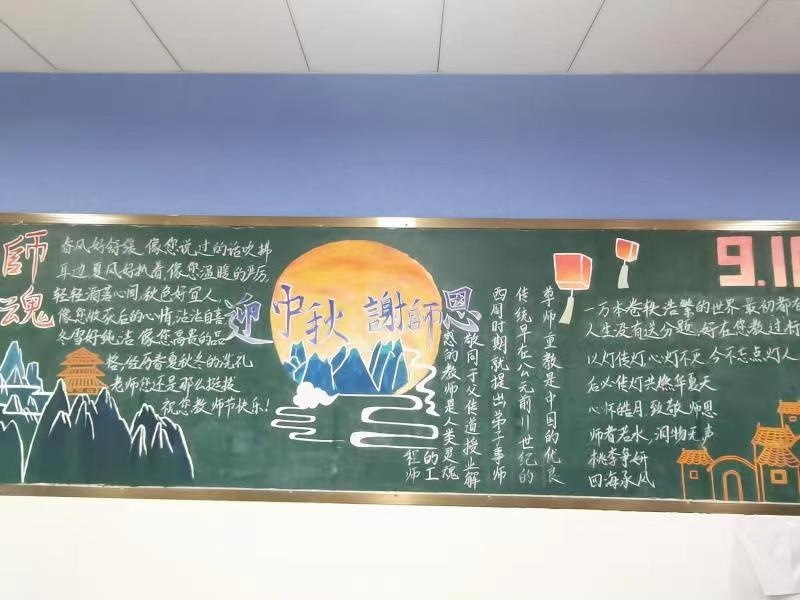 師魂
春风好舒缓 像您说过的话吹拂
耳边 夏风好执着 像您温暖的严厉
轻轻洒喜心间 秋色好宜人
像您收获后的心情 沾沾自喜
冬雪好纯洁 像您高贵的品
格 经历春夏秋冬的洗礼
老师您还是那么挺拔
祝您教师节快乐!
迎中秋 謝師恩
尊师重教是中国的优良
传统早在公元前11世纪的
西周时期就提出弟子事师
敬同于父传道授业解
惑的教师是人类灵魂
的工
程师
9.1
一万本卷轶浩繁的世界 最初都在
人生没有送分题 好在您教过标
以灯传灯 心灯不灭 今不忘点灯人
后必传灯共燃华夏天
心怀皓月 致敬师恩
师者若水 润物无声
桃李争妍
四海承风